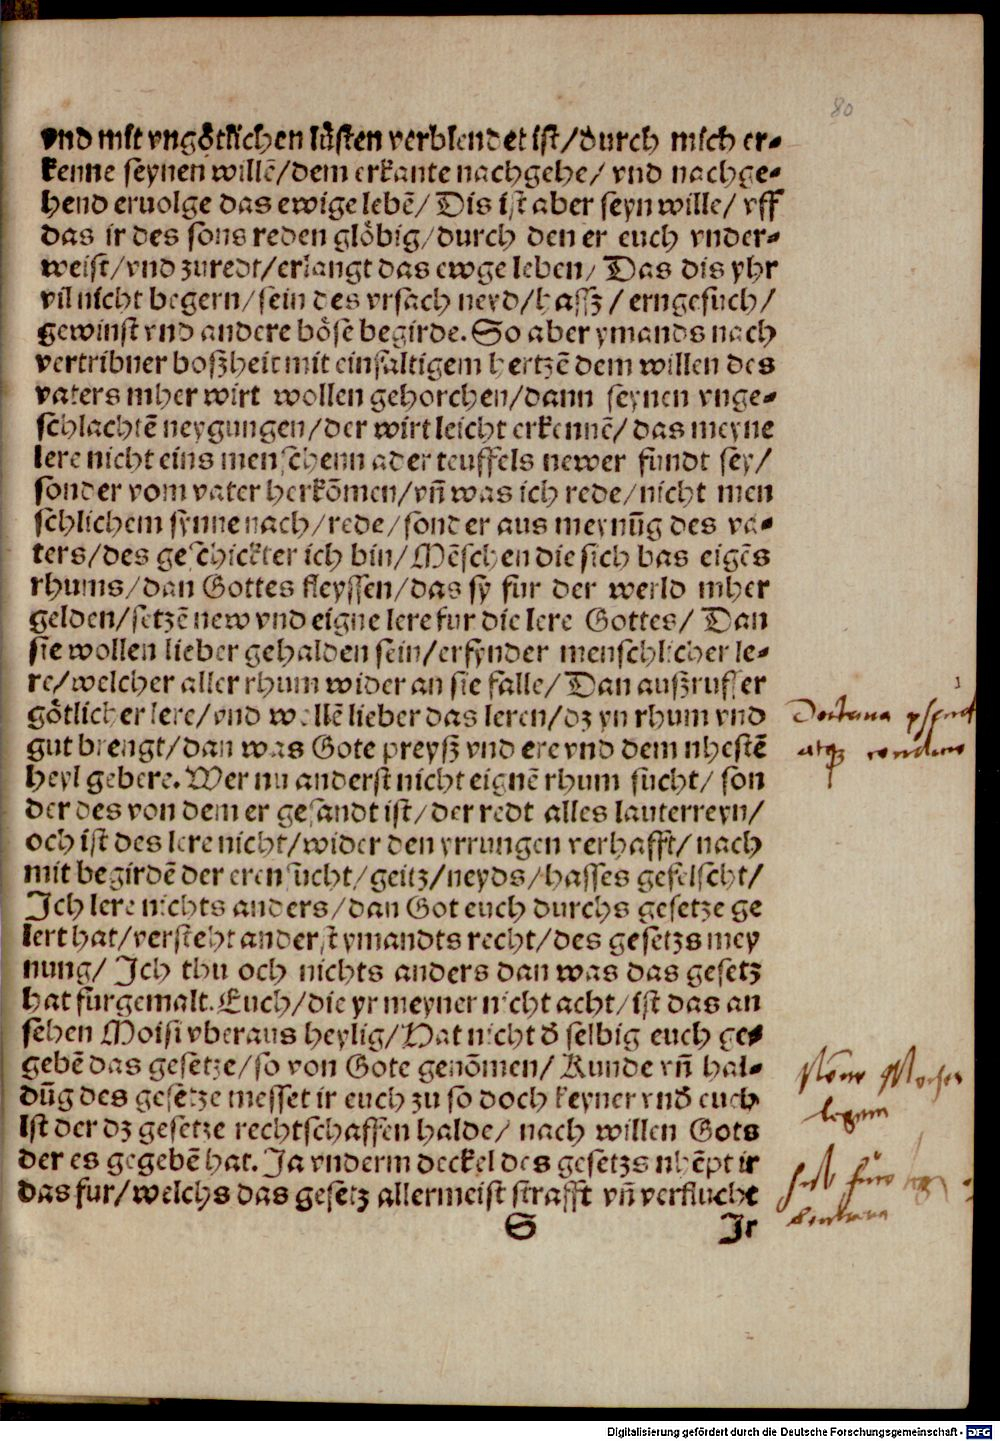 80
vnd mit vngötlichen lüsten verblendet ist/durch mich er-
kenne seynen willē/dem erkante nachgehe/ vnd nachge-
hend eruolge das ewige lebē/ Dis ist aber seyn wille/ vff
das ir des sons reden glöbig/durch den er euch vnder-
weist/vnd zuredt/erlangt das ewge leben/ Das dis yhr
vil nicht begern/sein des vrsach neyd/hassz/ erngesuch/
gewinst vnd andere böse begirde. So aber ymands nach
vertribner boßheit mit einfaltigem hertzē dem willen des
vaters mher wirt wollen gehorchen/dann seynen vnge-
schlachtē neygungen/der wirt leicht erkennē/ das meyne
lere nicht eins menschenn ader teuffels newer fundt sey/
sonder vom vater herkōmen/vn̄ was ich rede/nicht men
schlichem synne nach/rede/sonder aus meynūg des va-
ters/des geschickter ich bin/ Mēschen die sich bas eigēs
rhums/dan Gottes fleyssen/das sy fur der werld mher
gelden/setzē new vnd eigne lere fur die lere Gottes/ Dan
sie wollen lieber gehalden sein/erfynder menschlicher le-
re/welcher aller rhum wider an sie falle/ Dan außruffer
götlicher lere/vnd wollē lieber das leren/dz yn rhum vnd
gut brengt/dan was Gote preyß vnd ere vnd dem nhestē
heyl gebere. Wer nu anderst nicht eignē rhum sucht/ son
der des von dem er gesandt ist/der redt alles lauterreyn/
och ist des lere nicht/wider den yrrungen verhafft/ nach
mit begirdē der eren sucht/geitz/neyds/hasses gefelscht/
Ich lere nichts anders/dan Got euch durchs gesetze ge
lert hat/versteht anderst ymandts recht/des gesetzs mey
nung/ Ich thu och nichts anders dan was das gesetz
hat furgemalt. Euch/die yr meyner nicht acht/ist das an
sehen Moisi vberaus heylig/Hat nicht d̄ selbig euch ge-
gebē das gesetze/so von Gote genōmen/ Kunde vn̄ hal-
dūg des gesetze messet ir euch zu so doch keyner vnd̄ euch
Ist der dz gesetze rechtschaffen halde/ nach willen Gots
der es gegebē hat. Ja vnderm deckel des gesetzs nhēpt ir
das fur/welchs das gesetz allermeist strafft vn̄ verflucht
S Ir
legem
Digitalisierung gefördert durch die Deutsche Forschungsgemeinschaft - DFG